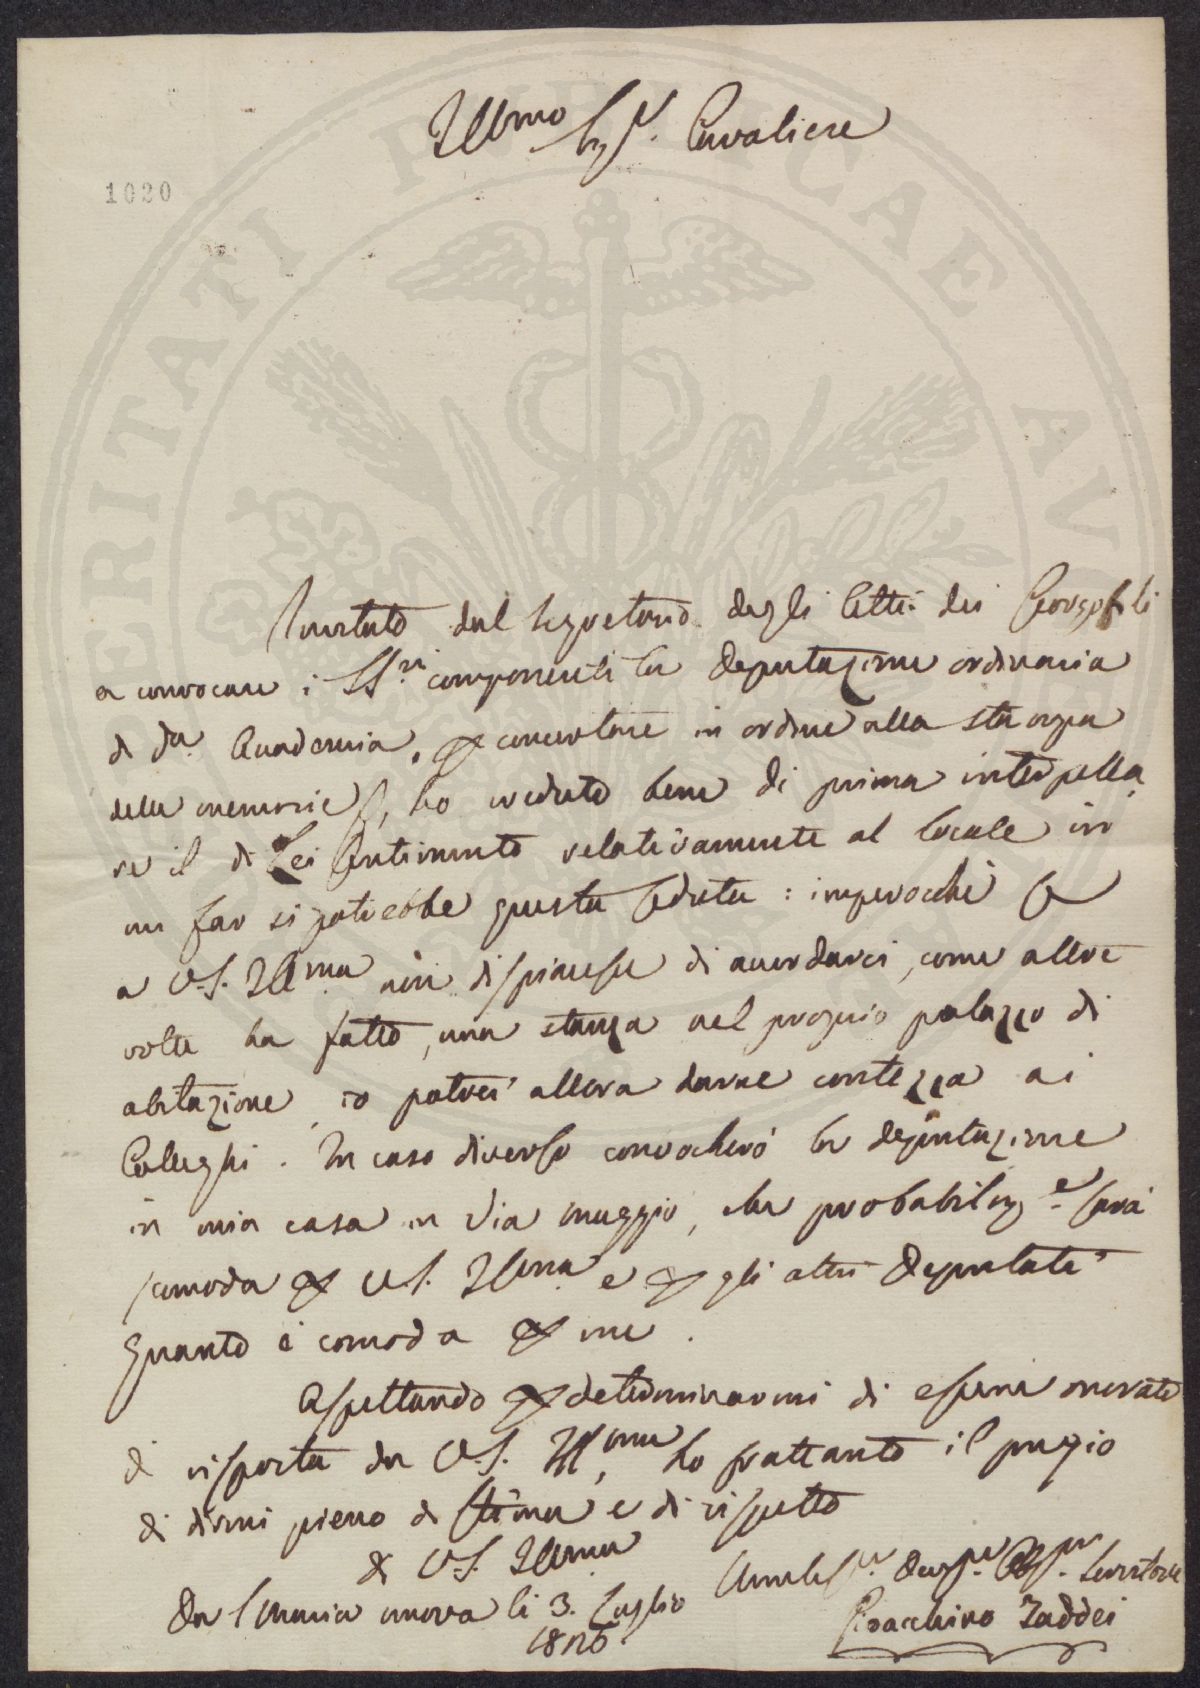 Illmo Sigr. Cavaliere
1020
PERITATI PUBLICAE AUC
Invitato dal Segretario degli Atti dei Georgofili
a convocare i SSri componenti la Deputazione ordinaria
di da Accademia, p concertare in ordine alla stampa
delle memorie, ho creduto bene di prima interpella
re il di Lei Sentimento relativamente al locale in
cui far si potrebbe questa seduta: imperocchè se
a V.S. Illma non dispiacesse di accordarci, come altre
volte ha fatto, una stanza nel proprio palazzo di
abitazione, io potrei allora darne contezza ai
Colleghi. In caso diverso convocherò la deputazione
in mia casa in Via maggio, che probabilme sarà
comoda p V.S. Illma e p gli altri Deputati
quanto è comoda p me.
Aspettando p determinarmi di essere onorato
di risposta da V.S. Illma, ho frattanto il pregio
di dirmi pieno di stima e di rispetto
di V.S. Illma
Da S Maria nuova li 3. Luglio
Servitore
Gioacchino Taddei